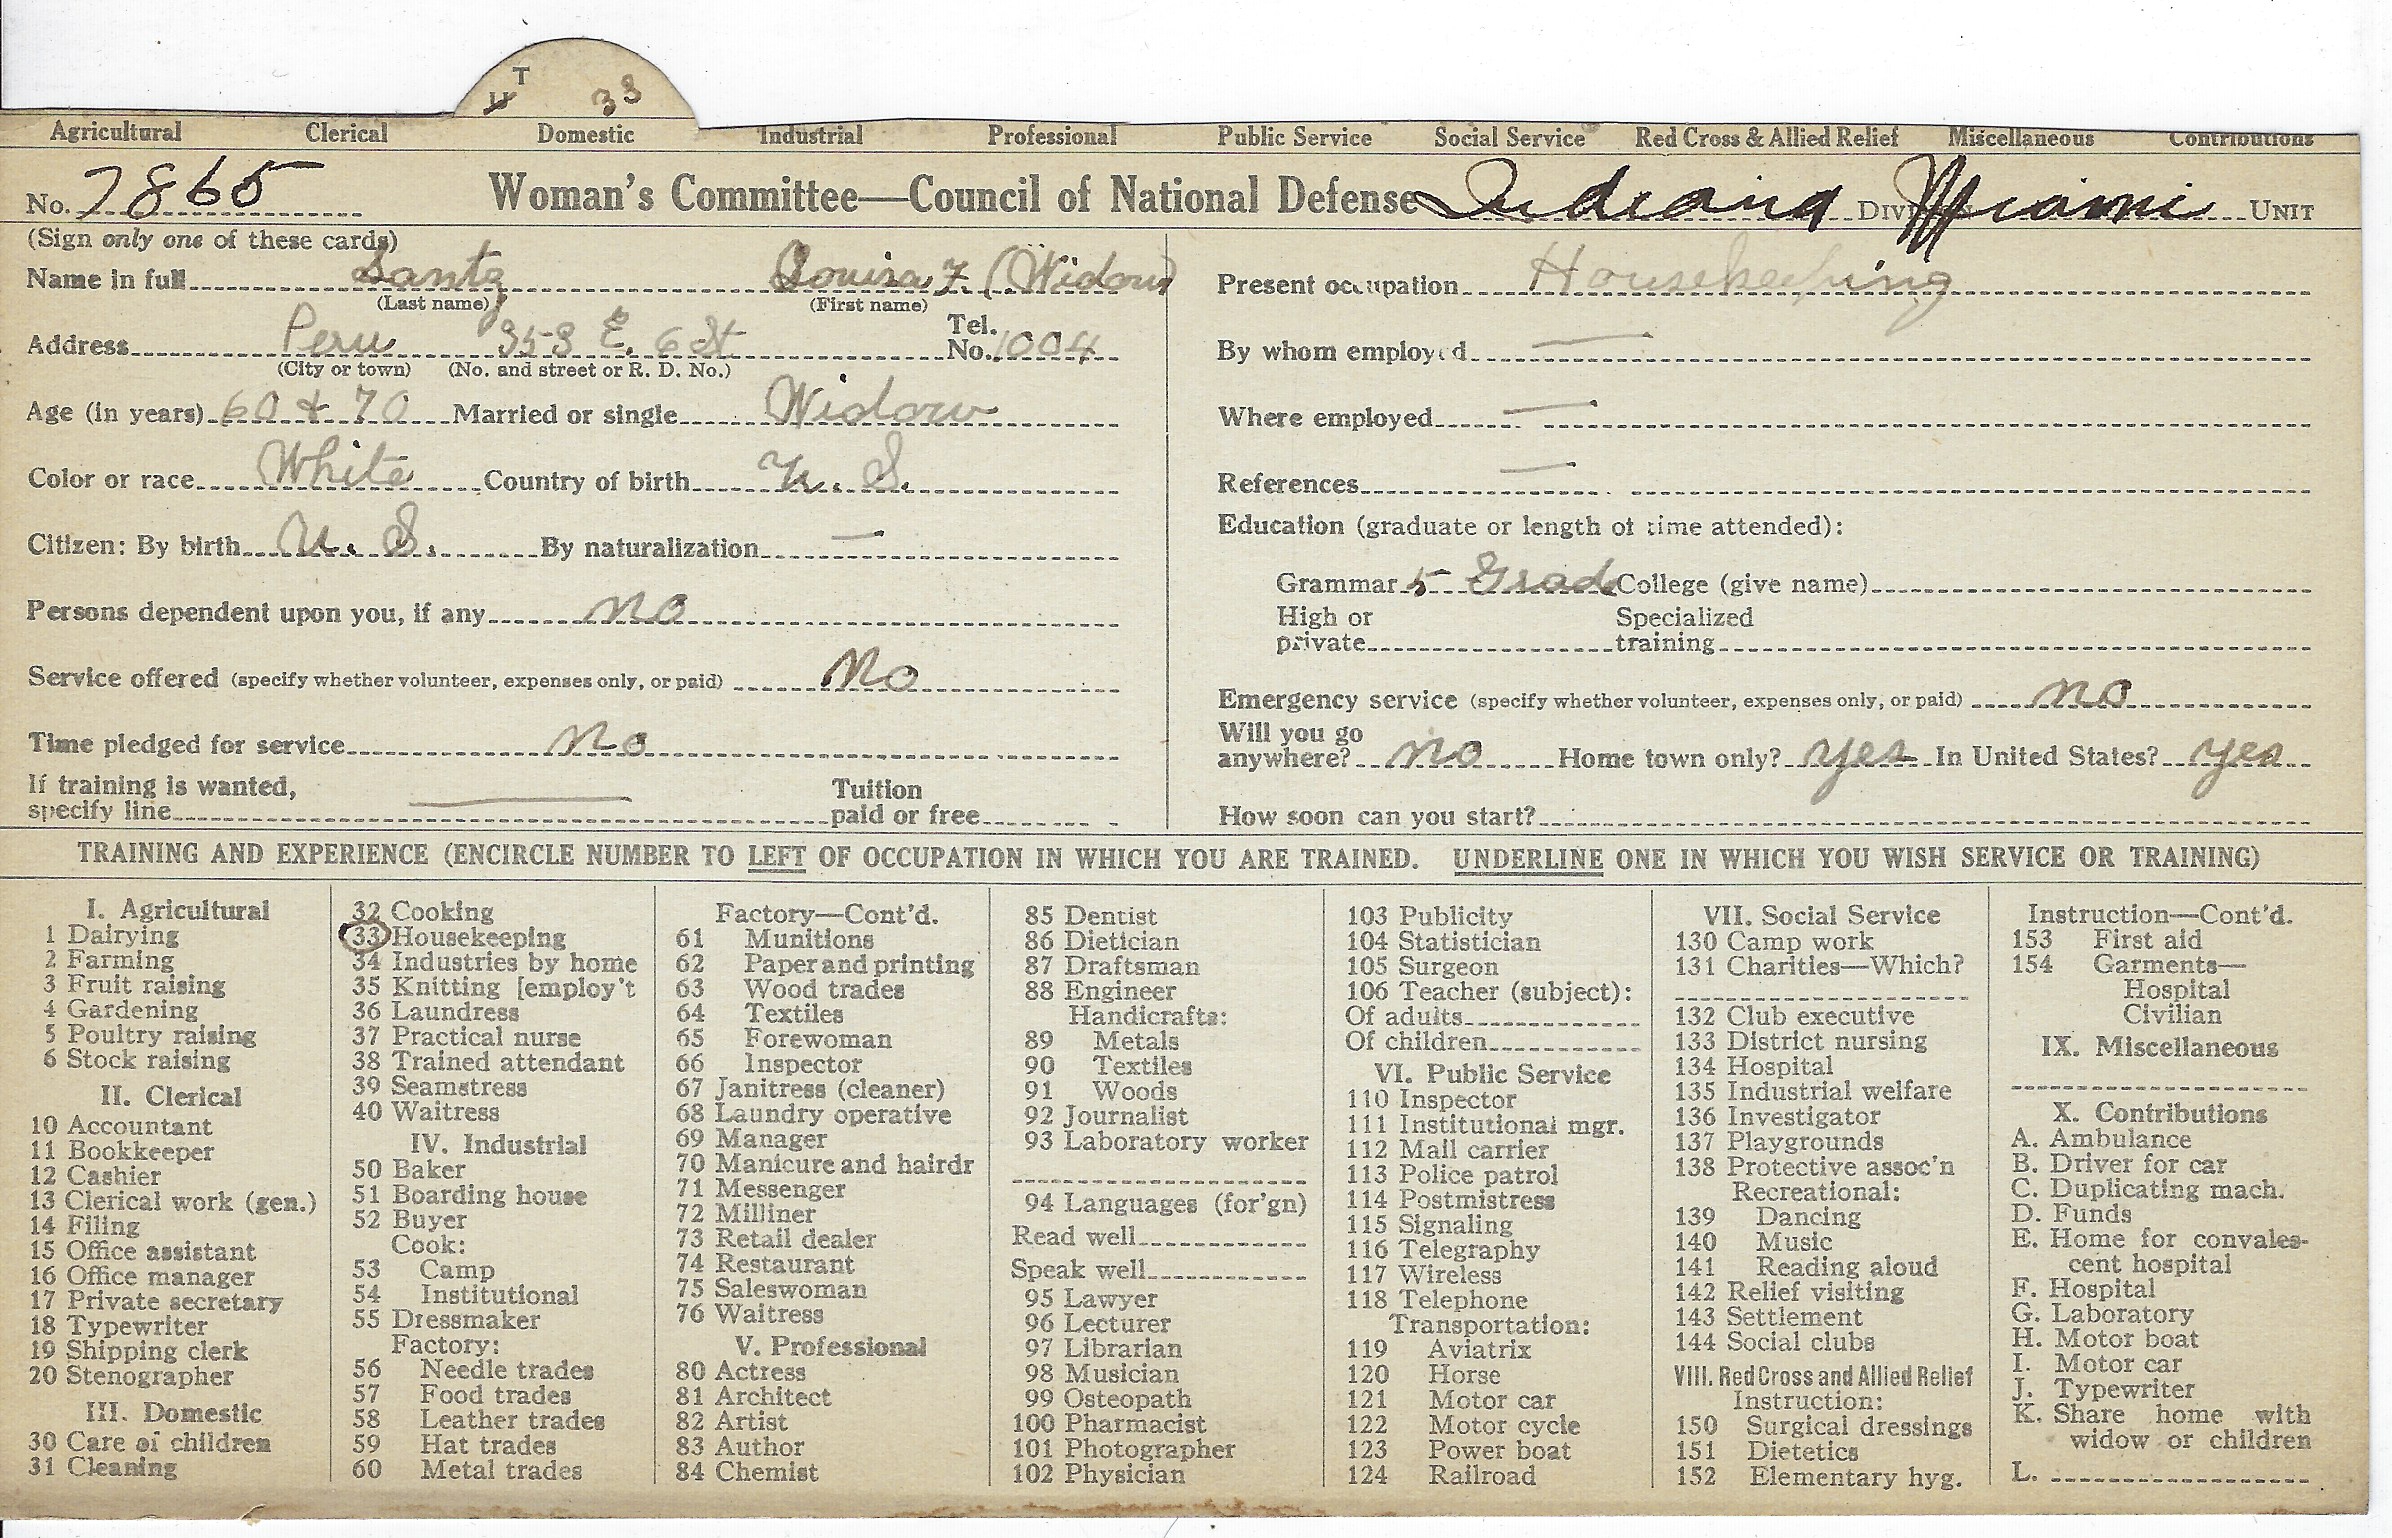 T
33
Agricultural Clerical Domestic Industrial Professional Public Service Social Service Red Cross & Allied Relief Miscellaneous Contributions
No. 7865 Woman's Committee—Council of National Defense Indiana DIVISION Miami UNIT
(Sign only one of these cards)
Name in full Lantz Louisa F. (Widow)
(Last name) (First name)
Address Peru 353 E. 6 St Tel. No. 1004
(City or town) (No. and street or R. D. No.)
Age (in years) 60 + 70 Married or single Widow
Color or race White Country of birth U. S.
Citizen: By birth U. S. By naturalization —
Persons dependent upon you, if any no
Service offered (specify whether volunteer, expenses only, or paid) No
Time pledged for service No
If training is wanted,
specify line — Tuition paid or free
Present occupation Housekeeping
By whom employed —
Where employed —
References —
Education (graduate or length of time attended):
Grammar 5 Grade College (give name)
High or private Specialized training
Emergency service (specify whether volunteer, expenses only, or paid) no
Will you go
anywhere? no Home town only? yes In United States? yes
How soon can you start?
TRAINING AND EXPERIENCE (ENCIRCLE NUMBER TO LEFT OF OCCUPATION IN WHICH YOU ARE TRAINED. UNDERLINE ONE IN WHICH YOU WISH SERVICE OR TRAINING)
I. Agricultural
1 Dairying
2 Farming
3 Fruit raising
4 Gardening
5 Poultry raising
6 Stock raising
II. Clerical
10 Accountant
11 Bookkeeper
12 Cashier
13 Clerical work (gen.)
14 Filing
15 Office assistant
16 Office manager
17 Private secretary
18 Typewriter
19 Shipping clerk
20 Stenographer
III. Domestic
30 Care of children
31 Cleaning
32 Cooking
33 Housekeeping
34 Industries by home
35 Knitting [employ't
36 Laundress
37 Practical nurse
38 Trained attendant
39 Seamstress
40 Waitress
IV. Industrial
50 Baker
51 Boarding house
52 Buyer
Cook:
53 Camp
54 Institutional
55 Dressmaker
Factory:
56 Needle trades
57 Food trades
58 Leather trades
59 Hat trades
60 Metal trades
Factory—Cont'd.
61 Munitions
62 Paper and printing
63 Wood trades
64 Textiles
65 Forewoman
66 Inspector
67 Janitress (cleaner)
68 Laundry operative
69 Manager
70 Manicure and hairdr
71 Messenger
72 Milliner
73 Retail dealer
74 Restaurant
75 Saleswoman
76 Waitress
V. Professional
80 Actress
81 Architect
82 Artist
83 Author
84 Chemist
85 Dentist
86 Dietician
87 Draftsman
88 Engineer
Handicrafts:
89 Metals
90 Textiles
91 Woods
92 Journalist
93 Laboratory worker
94 Languages (for'gn)
Read well
Speak well
95 Lawyer
96 Lecturer
97 Librarian
98 Musician
99 Osteopath
100 Pharmacist
101 Photographer
102 Physician
103 Publicity
104 Statistician
105 Surgeon
106 Teacher (subject):
Of adults
Of children
VI. Public Service
110 Inspector
111 Institutional mgr.
112 Mail carrier
113 Police patrol
114 Postmistress
115 Signaling
116 Telegraphy
117 Wireless
118 Telephone
Transportation:
119 Aviatrix
120 Horse
121 Motor car
122 Motor cycle
123 Power boat
124 Railroad
VII. Social Service
130 Camp work
131 Charities—Which?
132 Club executive
133 District nursing
134 Hospital
135 Industrial welfare
136 Investigator
137 Playgrounds
138 Protective assoc'n
Recreational:
139 Dancing
140 Music
141 Reading aloud
142 Relief visiting
143 Settlement
144 Social clubs
VIII. Red Cross and Allied Relief
Instruction:
150 Surgical dressings
151 Dietetics
152 Elementary hyg.
Instruction—Cont'd.
153 First aid
154 Garments—
Hospital
Civilian
IX. Miscellaneous
X. Contributions
A. Ambulance
B. Driver for car
C. Duplicating mach.
D. Funds
E. Home for convales-
cent hospital
F. Hospital
G. Laboratory
H. Motor boat
I. Motor car
J. Typewriter
K. Share home with
widow or children
L.